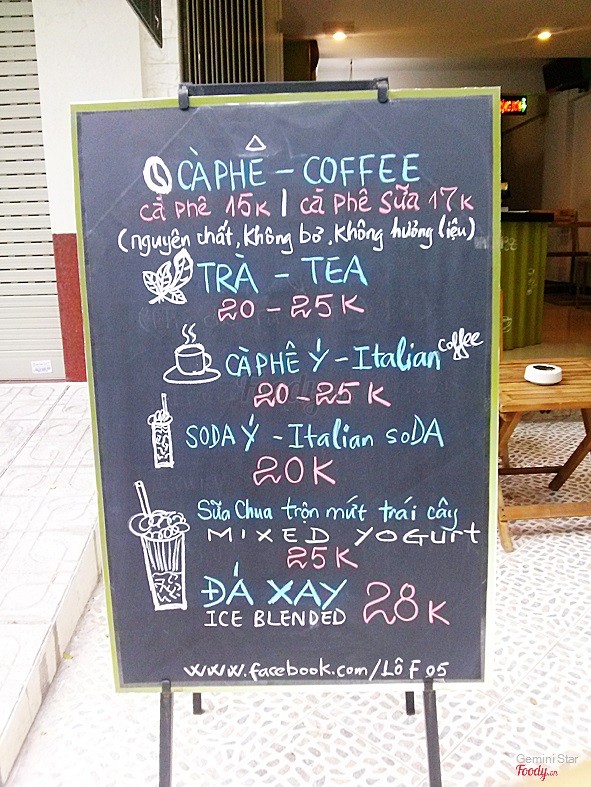 CÀ PHÊ - COFFEE
cà phê 15K | cà phê sữa 17K
(nguyên chất, không bơ, không hương liệu)
TRÀ - TEA
20 - 25K
CÀ PHÊ Ý - Italian coffee
20 - 25K
SODA Ý - Italian soDA
20K
Sữa Chua trộn mứt trái cây
MIXED YOGUrt
25K
ĐÁ XAY 28K
ICE BLENDED
www.facebook.com/Lô F 05
Gemini Star
Foody.vn